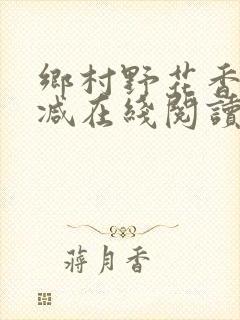 鄉村野花香
减在綫閱讀
蔣月香